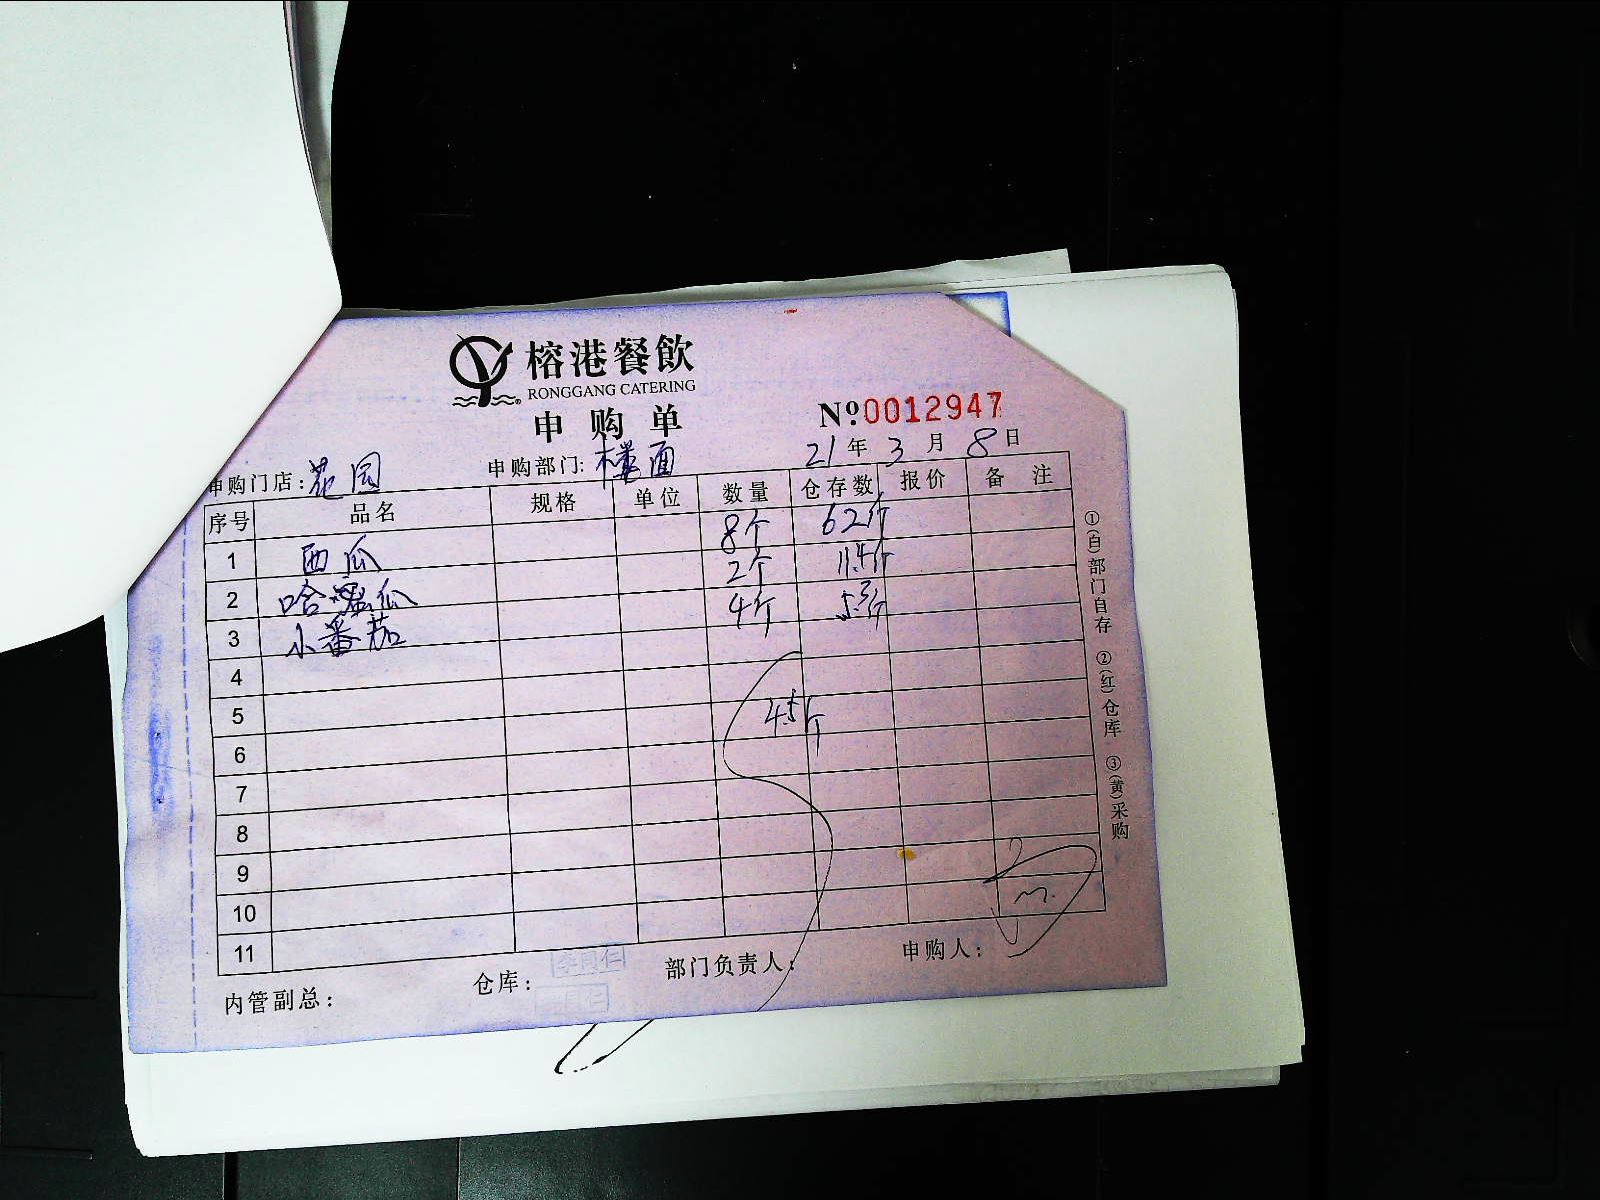 榕港餐飲
RONGGANG CATERING
申购单
№.0012947
申购门店：花园 申购部门：楼面 21年3月8日
序号 品名 规格 单位 数量 仓存数 报价 备注
1 西瓜 8个 62斤
2 哈密瓜 2个 11.4斤
3 小番茄 4斤 5.3斤
4
5 4.5斤
6
7
8
9
10
11
内管副总： 仓库： 部门负责人： 申购人：
①(白)部门自存 ②(红)仓库 ③(黄)采购